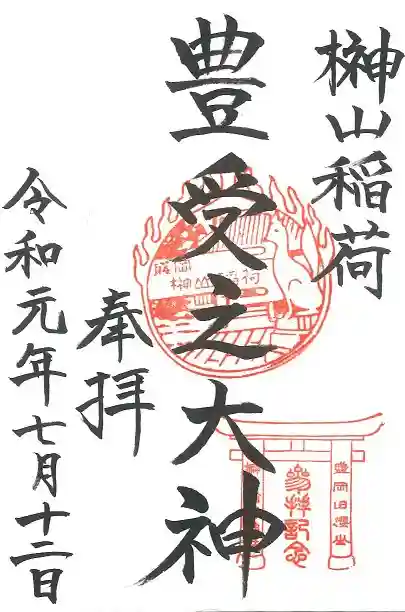 榊山稲荷
豊受之大神
奉拝
令和元年七月十二日
盛岡
榊山稲荷
参拝記念
盛岡旧櫻山